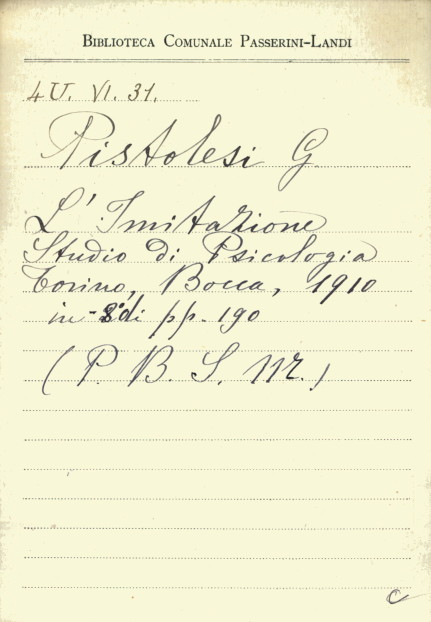 BIBLIOTECA COMUNALE PASSERINI-LANDI
4U. VI. 31.
Pistolesi G.
L'Imitazione
Studio di Psicologia
Torino, Bocca, 1910
in-8° di pp. 190
(P. B. S. 112.)
C